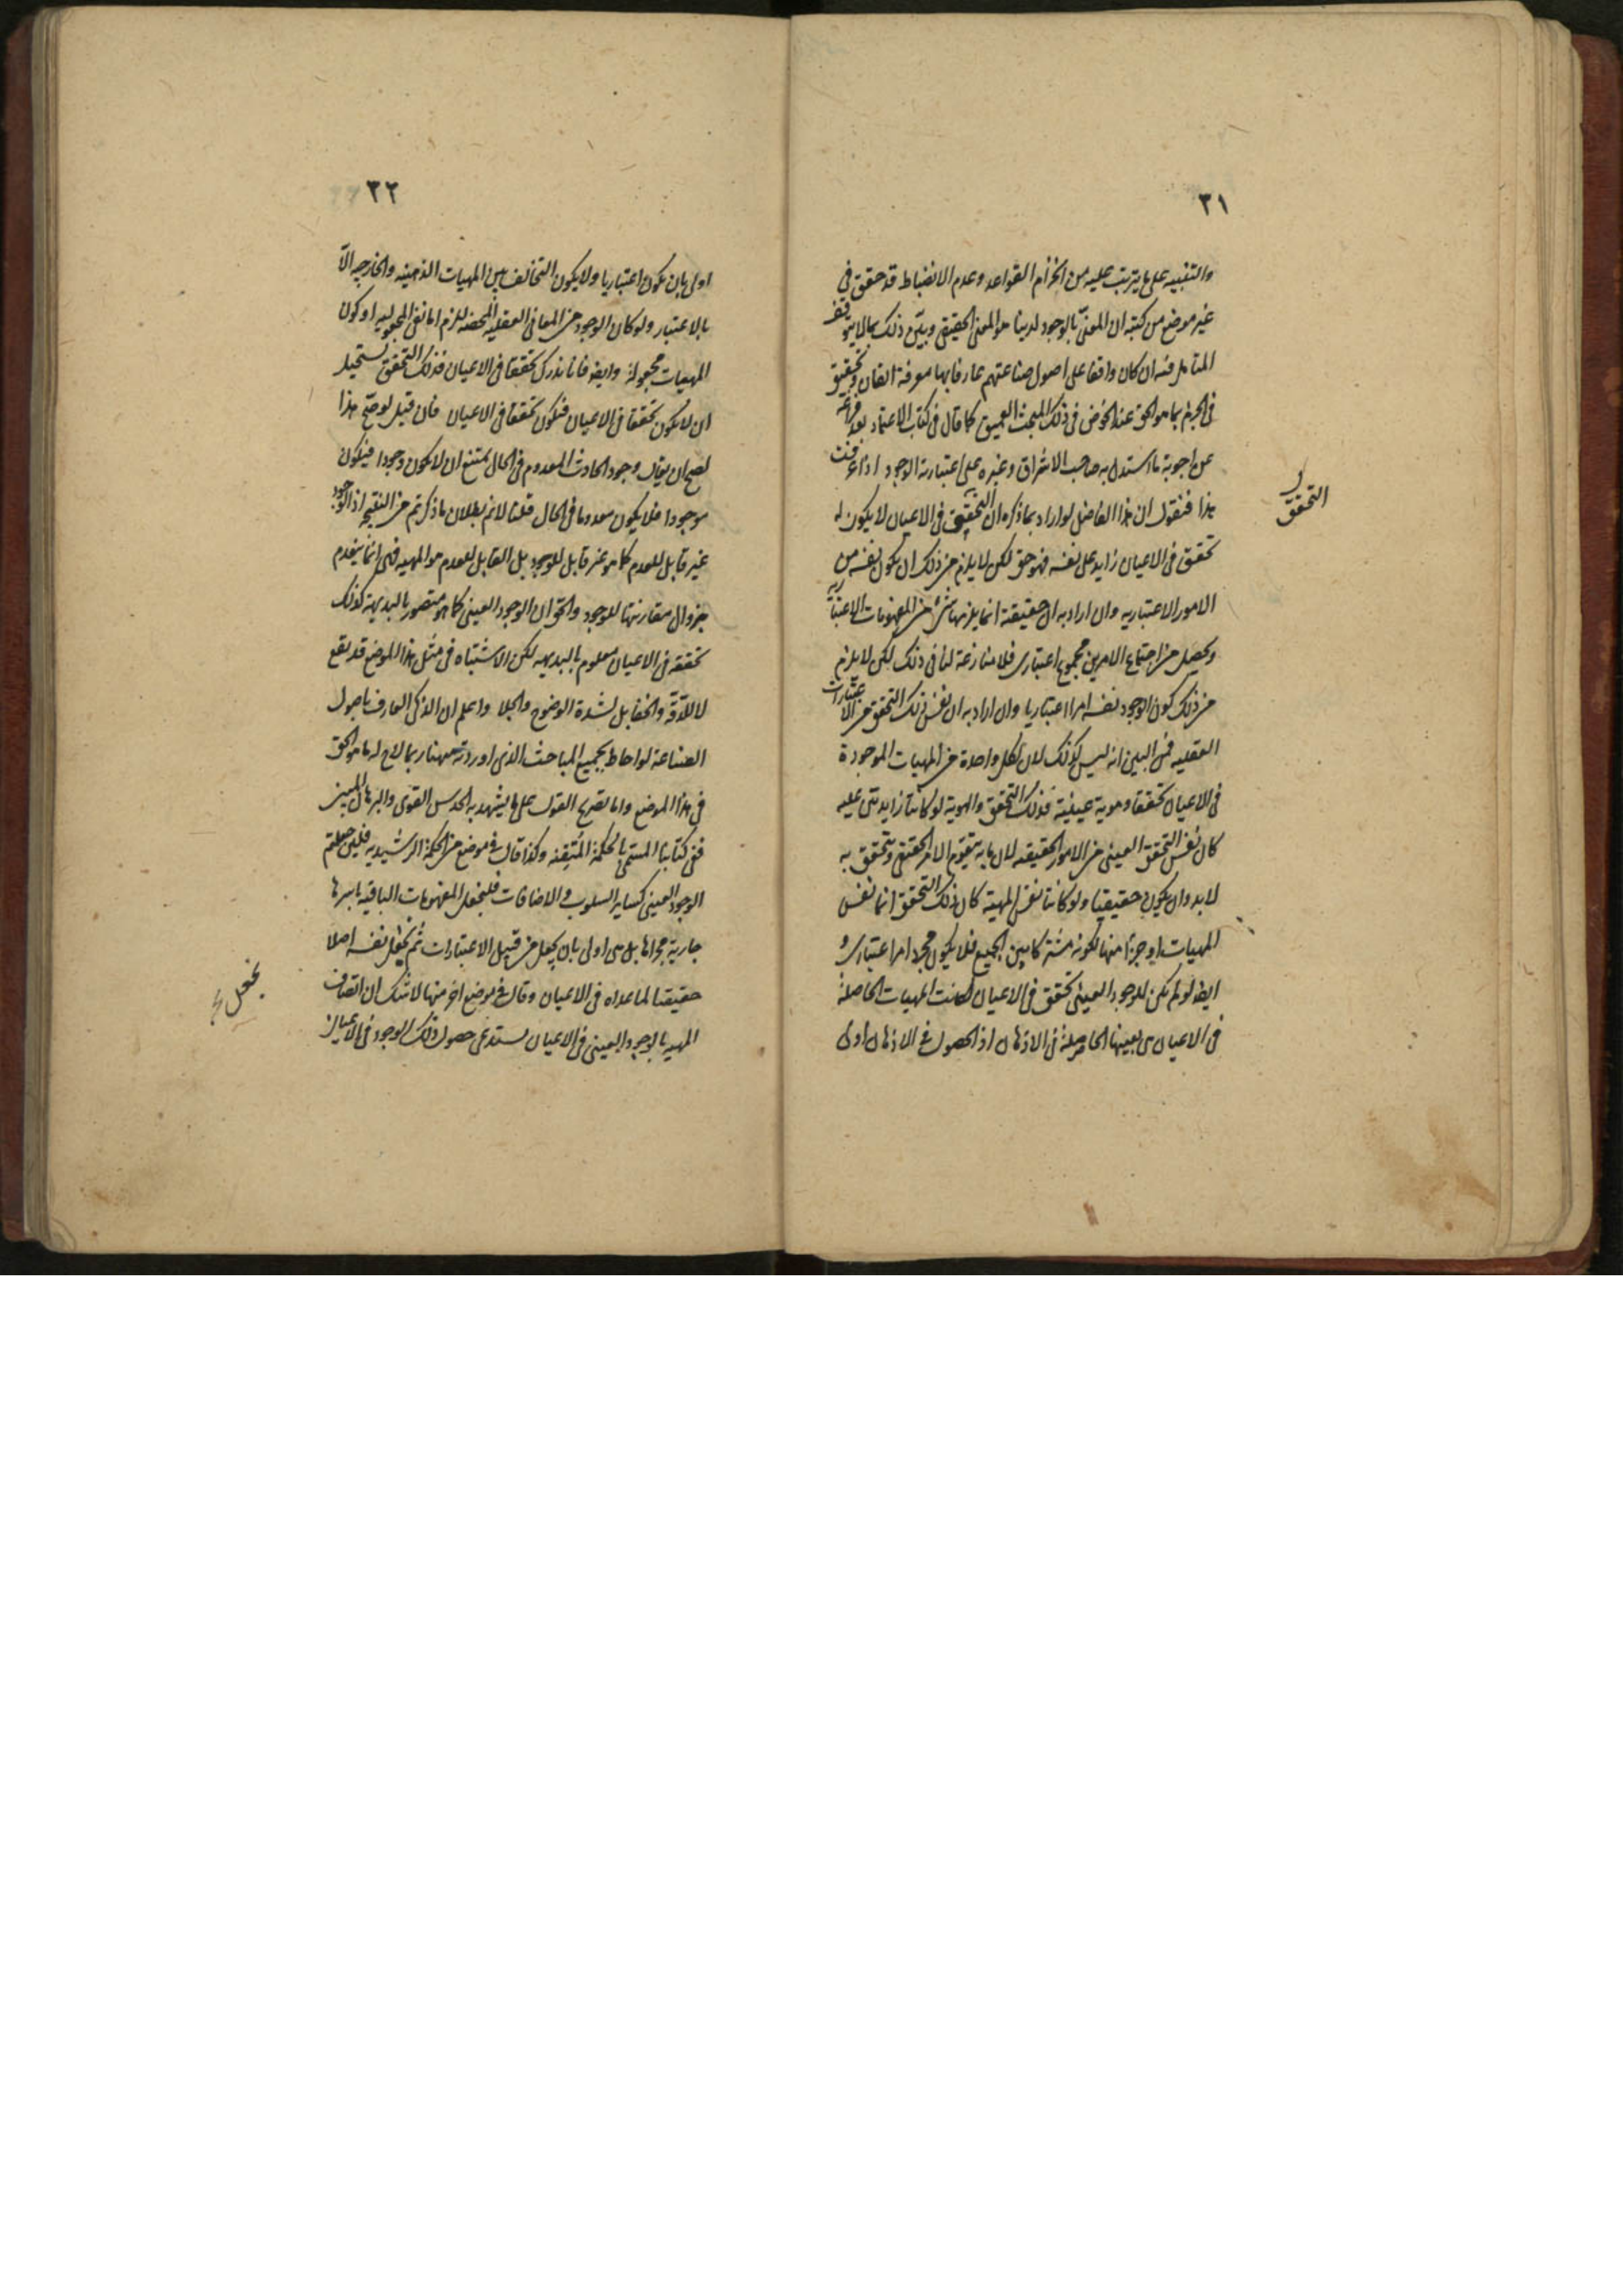 ٣١
والتنبيه على ما يترتب عليه من انخرام القواعد وعدم الانضباط قد حقق في
غير موضع من كتبه ان المعنىّ بالوجود لدينا هو المعنى الحقيقى وبيّن ذلك بما لا يتوقف
المتامل فيه ان كان واقفا على اصول صناعتهم عارفا بها معرفة اتقان وتحقيق
فى الجزم بما هو الحق عند الخوض فى ذلك المبحث العميق كما قال فى كتاب الاعتماد بعد فراغه
عن اجوبة ما استدل به صاحب الاشراق وغيره على اعتبارية الوجود اذا عرفت
هذا فنقول ان هذا الفاضل لو اراد بما ذكره ان التحقيق فى الاعيان لا يكون له
تحقق فى الاعيان زايد على نفسه فهو حق لكن لا يلزم من ذلك ان يكون نفسه من
الامور الاعتباريه وان اراد به ان حقيقته انما يلزمها شئ من المفهومات الاعتبارية
ويحصل من اجتماع الامرين مجموع اعتبارى فلا منازعة لنا فى ذلك لكن لا يلزم
من ذلك كون الوجود نفسه امرا اعتباريا وان اراد به ان نفس ذلك التحقق من الاعتبارات
العقليه فمن البين انه ليس كذلك لان لكل واحدة من المهيات الموجودة
فى الاعيان تحققا وهوية عينية فذلك التحقق والهوية لو كانتا زايدتى عليه
كان نفس التحقق العينى من الامور الحقيقه لان ما به يتقوم الامر الحقيقى ويتحقق به
لابد وان يكون حقيقيا ولو كانتا نفس المهية كان ذلك التحقق انما نفس
المهيات او جزءا منها لكونه مشتركا بين الجميع فلا يكون مجرد امر اعتبارى و
ايضا لو لم يكن للوجود العينى تحقق فى الاعيان لكانت المهيات الحاصلة
فى الاعيان هى بعينها الحاصلة فى الاذهان اذ الحصول فى الاذهان اولى
التحقق
٣٢
اولى بان يكون اعتباريا ولا يكون التخالف بين المهيات الذهنيه والخارجيه الّا
بالاعتبار ولو كان الوجود من المعانى العقليه المحضه للزم اما نفى المجعوليه او كون
المهيات مجعولة وايضا فانا ندرك تحققا فى الاعيان فذلك التحقق يستحيل
ان لا يكون تحققا فى الاعيان فيكون تحققا فى الاعيان فان قيل لو صحّ هذا
لصح ان يقال وجود الحادث المعدوم فى الحال يمتنع ان لا يكون وجودا فيكون
موجودا فلا يكون معدوما فى الحال قلنا لا نم بطلان ما ذكرتم من النتيجه اذ الوجود
غير قابل للعدم كما هو غير قابل للوجود بل القابل للعدم هو المهيه فهى انما ينعدم
بزوال مقارنتها للوجود والحق ان الوجود العينى كما هو متصور بالبديهة كذلك
تحققه فى الاعيان معلوم بالبديهه لكن الاشتباه فى مثل هذا الموضع قد يقع
لا للدّقة والخفا بل لشدة الوضوح والجلا واعلم ان الذكى العارف باصول
الصناعة لو احاط بجميع المباحث الذى اوردته ههنا ربما لاح له ما هو الحق
فى هذا الموضع واما تصريح القول على ما يشهد به الحدس القوى والبرهان المبين
ففى كتابنا المسمى بالحكمة المتيقنه وكذا قال فى موضع من الحكمة الرشيديه فلئن جعلتم
الوجود العينى كساير السلوب والاضافات فلنجعل المفهومات الباقيه باسرها
جارية مجراها بل هى اولى بان يجعل من قبيل الاعتبارات ثم يجعل نفسه اصلا
حقيقتا لما عداه فى الاعيان وقال فى موضع اخر منها لا شك ان اتصاف
المهيه بالوجود العينى فى الاعيان يستدعى حصول ذلك الوجود فى الاعيان
نجعل